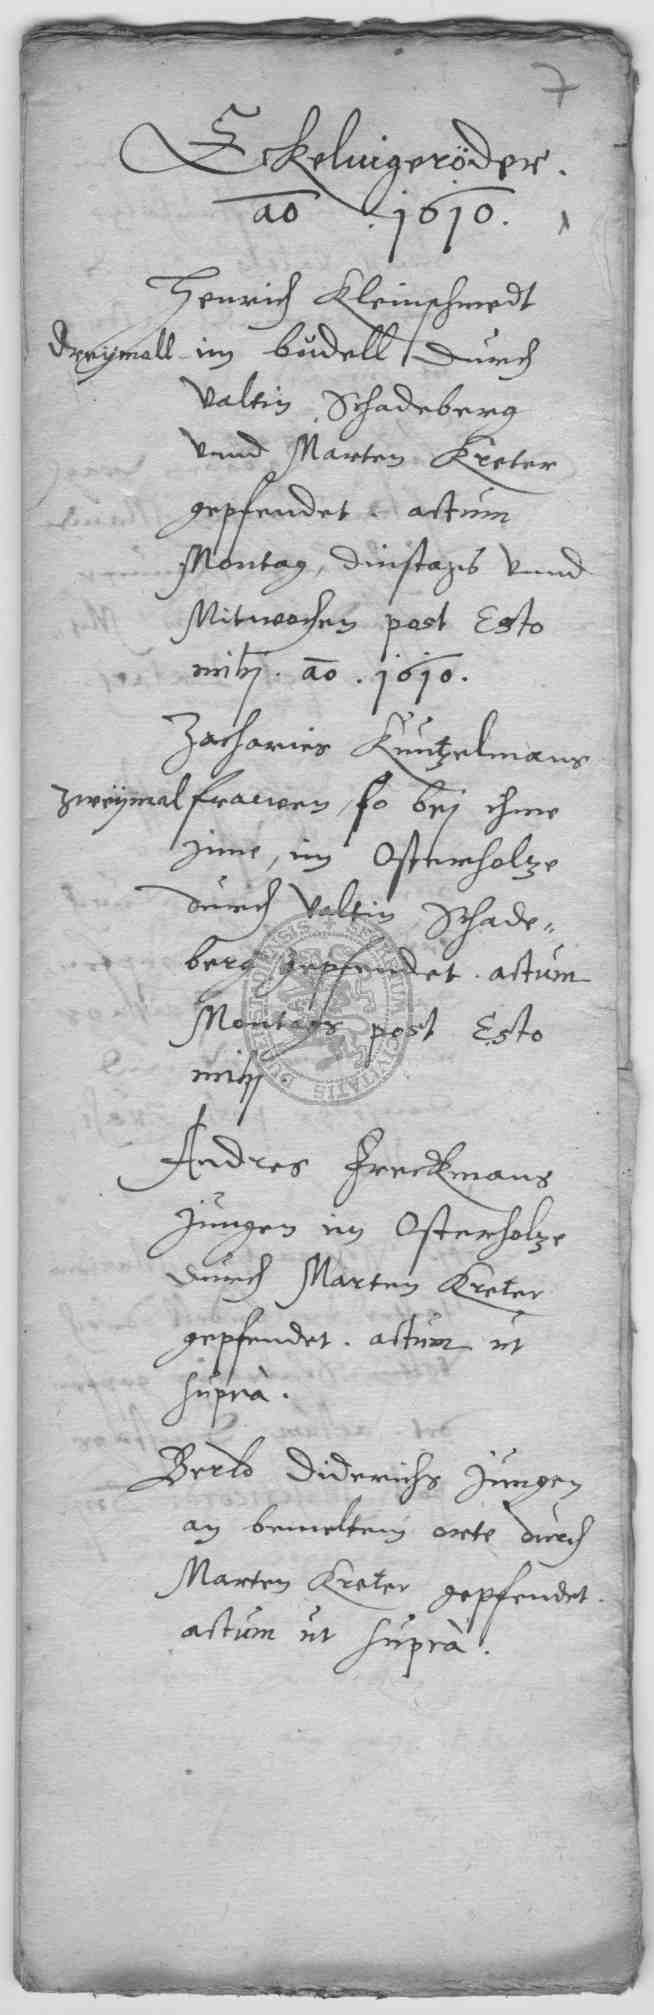 7
Ekelingeröder.
ao 1610.
Henrich Kleinschmedt
Dreÿmall im büdell durch
Valtin Schadeberg
vnnd Marten Kreter
gepfendet. actum
Montag, dinstags vnnd
Mitwochen post Esto
mihj. ao. 1610.
Zacharies Küntzelmans
zweÿmal frawen, so bej ihme
inne, im Osterholtze
durch Valtin Schade„
berg gepfendet. actum
Montags post Esto
mihj
Andres Freckmans
Jungen im Osterholtze
durch Marten Kreter
gepfendet. actum ut
suprà.
Berld Diderichs Jungen
an bemeltem orte durch
Marten Kreter gepfendet.
actum ut suprà.